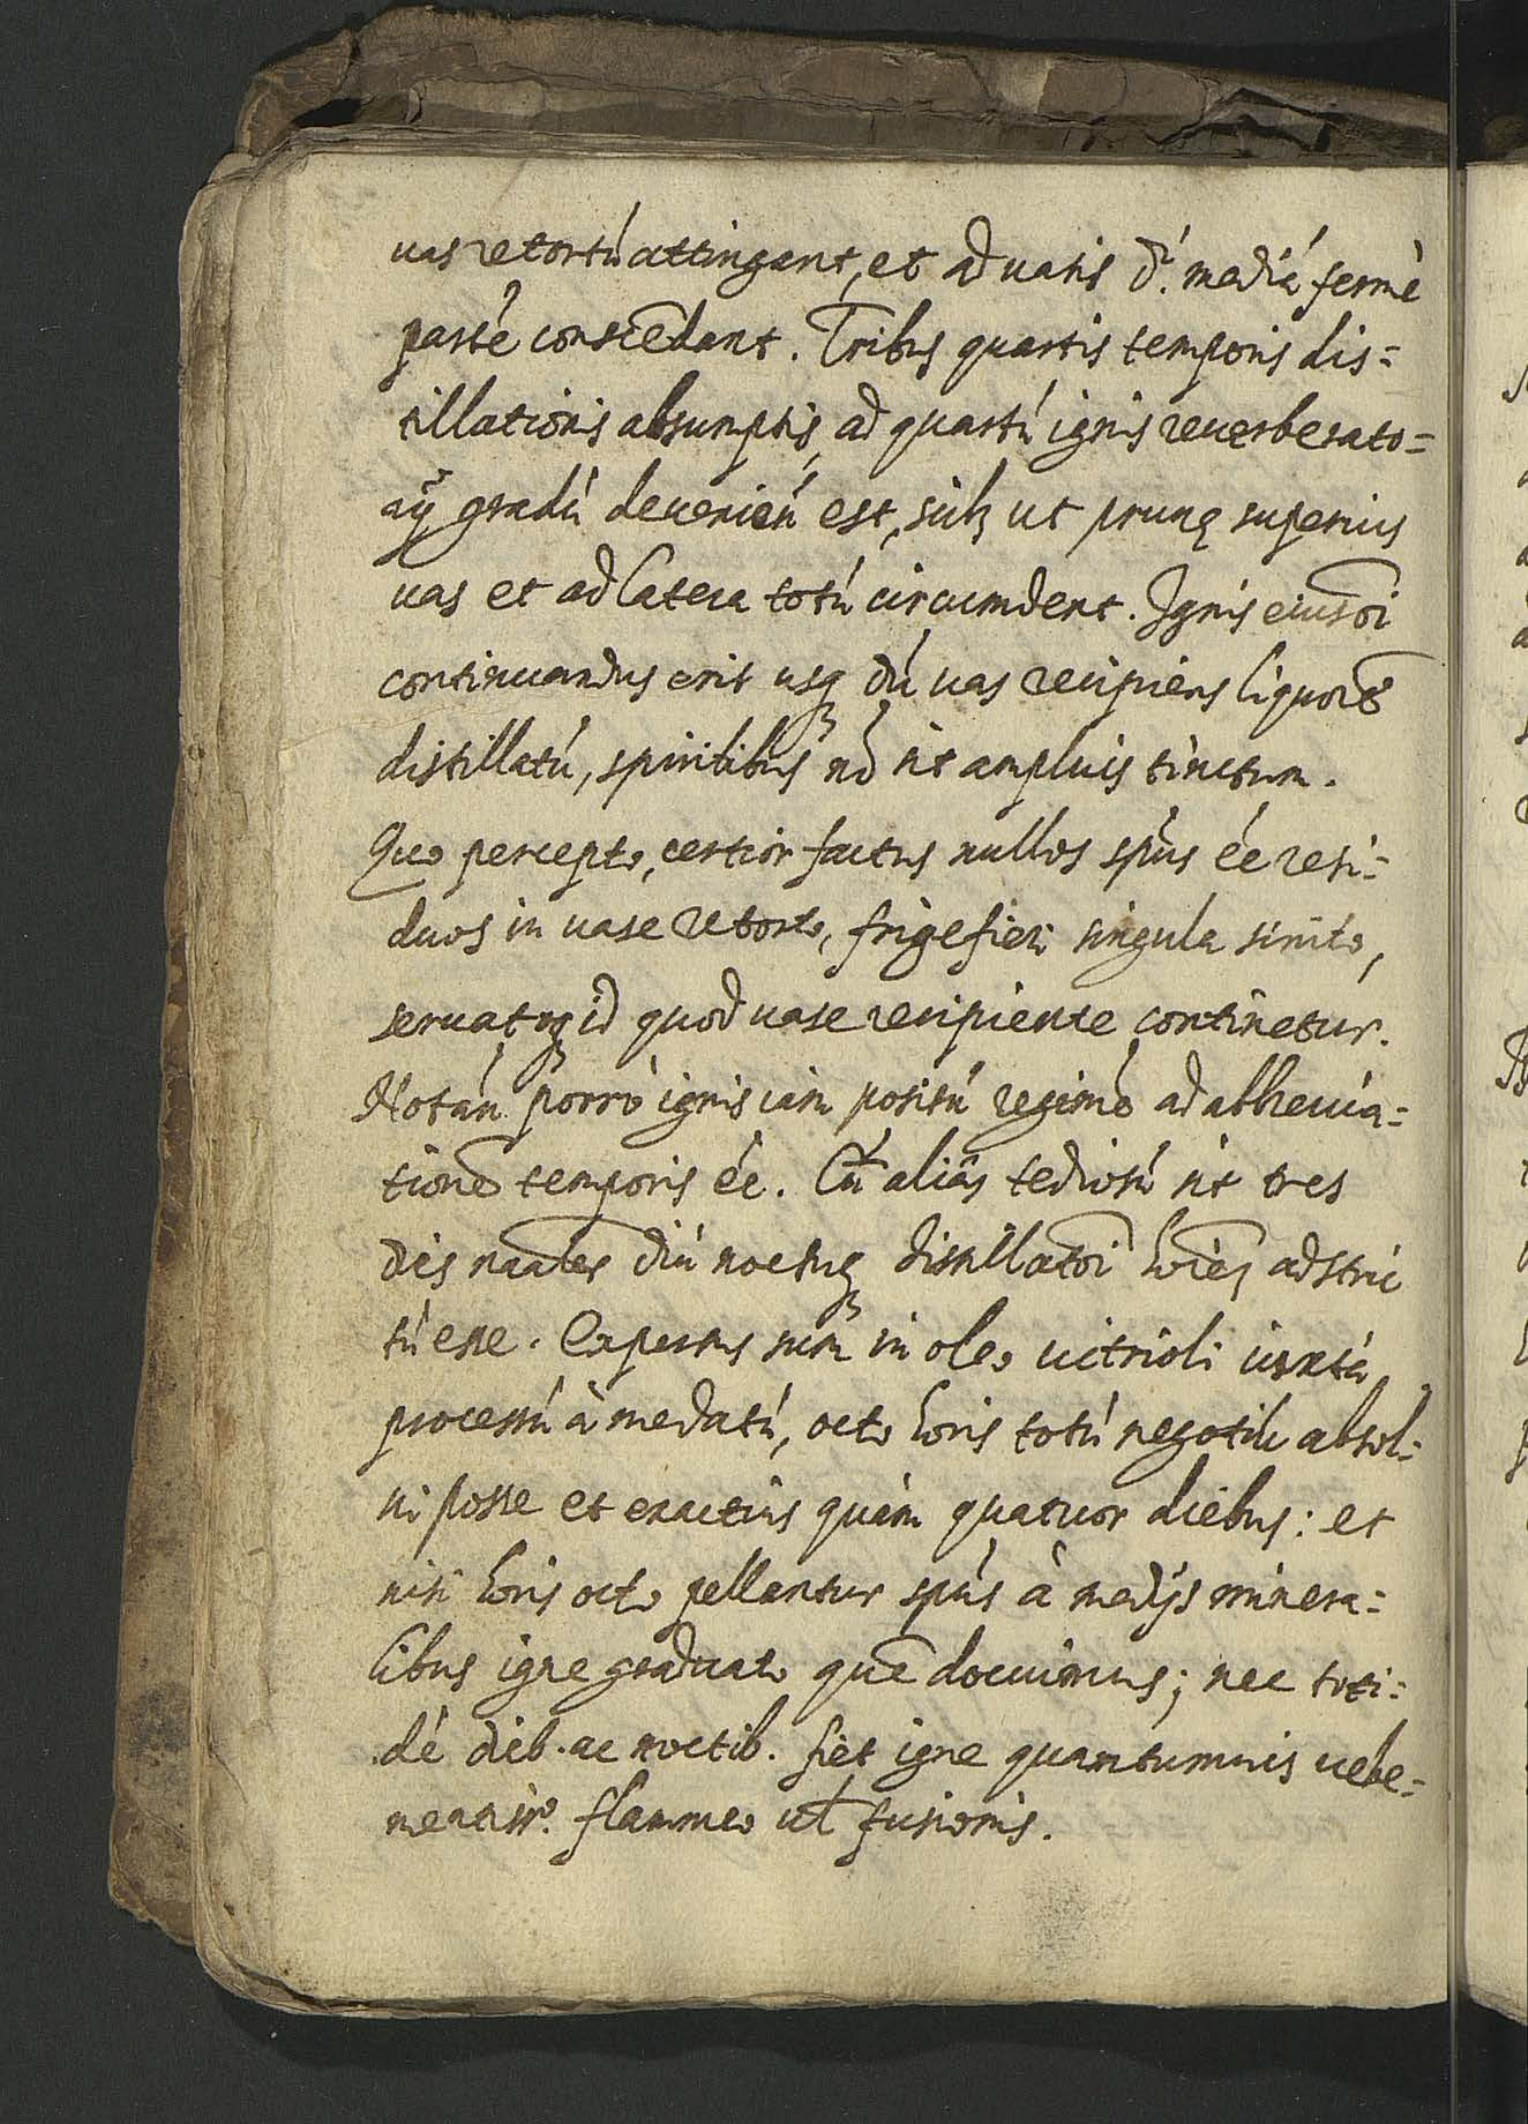 uas retortú attingant, et ad uasis d. mediá fermè
parté conscēdant. Tribus quartis temporis dis=
tillationis absumptis, ad quartú ignis reuerberato=
rij gradú deueniēú est, ut prunę superius
uas et ad latera totú circumdent. Ignis eiusdi
continuandus erit usq dú uas recipiens liquorē
distillatú, spiritibus nō sit amplius tinctum.
Quo percepto, certior factus nullos spús éé resi=
duos in uase retorto, frigefieri singula sinito,
seruatoq id quod uase recipiente continetur.
Notán porrò ignis iam positú regimē ad abbreuia=
tionē temporis éé. Cū aliâs tediosú sit tres
dies diú noctuq distillatōi adstric
tú esse. Expertus sum in oleo uitrioli iuxta
processú à me datú, octo horis totú negotiú absol=
ui posse et exactius quàm quatuor diebus: et
nisi horis octo pellantur spús à medijs minera=
libus igne graduato quē docuimus; nec toti=
dé dieb. ac noctib. fiet igne quantumuis uehe=
mentiss.º flammeo ul fusionis.